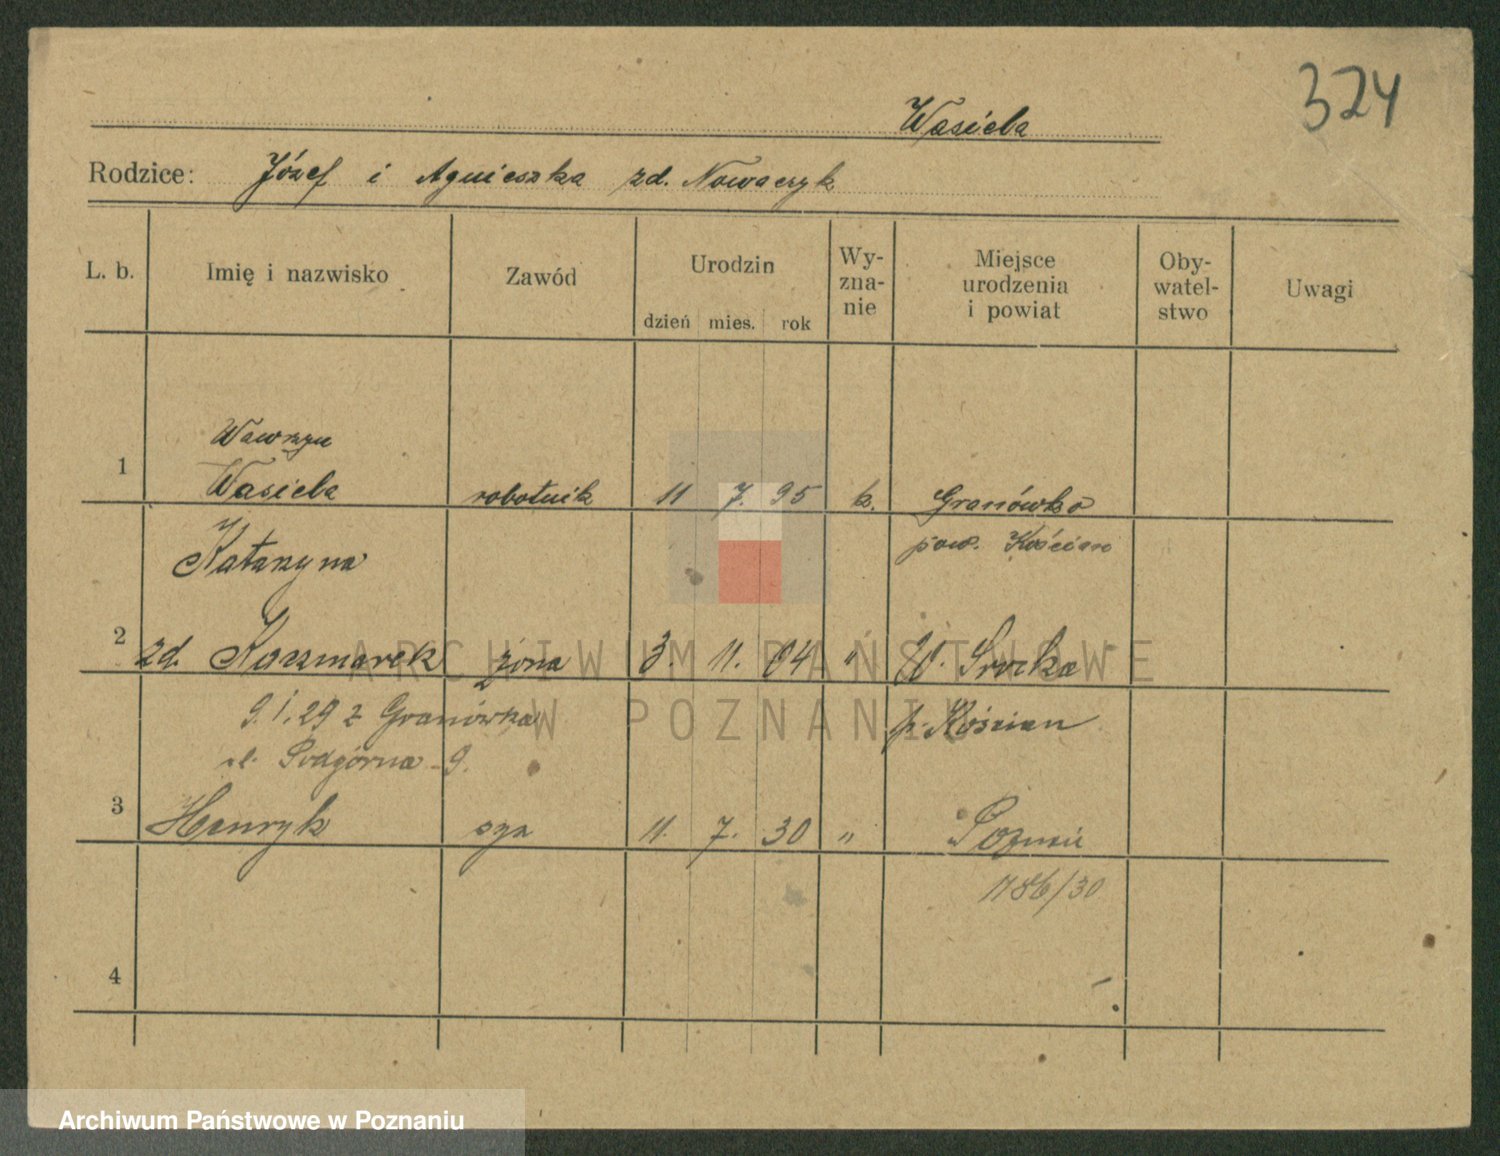 324
Wasiela
Rodzice: Józef i Agnieszka zd. Nowaczyk
L. b. Imię i nazwisko Zawód Urodzin dzień mies. rok Wy-zna-nie Miejsce urodzenia i powiat Oby-watel-stwo Uwagi
Wawrzyn
1 Wasiela robotnik 11 7. 95 k. Granówko
Katarzyna pow. Kościan
2 zd. Kaczmarek żona 3. 11. 04 " W. Srocka
9.1.29 z Granówka p. Kościan
ul. Podgórna 9.
3 Henryk syn 11. 7. 30 " Poznań
1786/30
4
ARCHIWUM PAŃSTWOWE
W POZNANIU
Archiwum Państwowe w Poznaniu